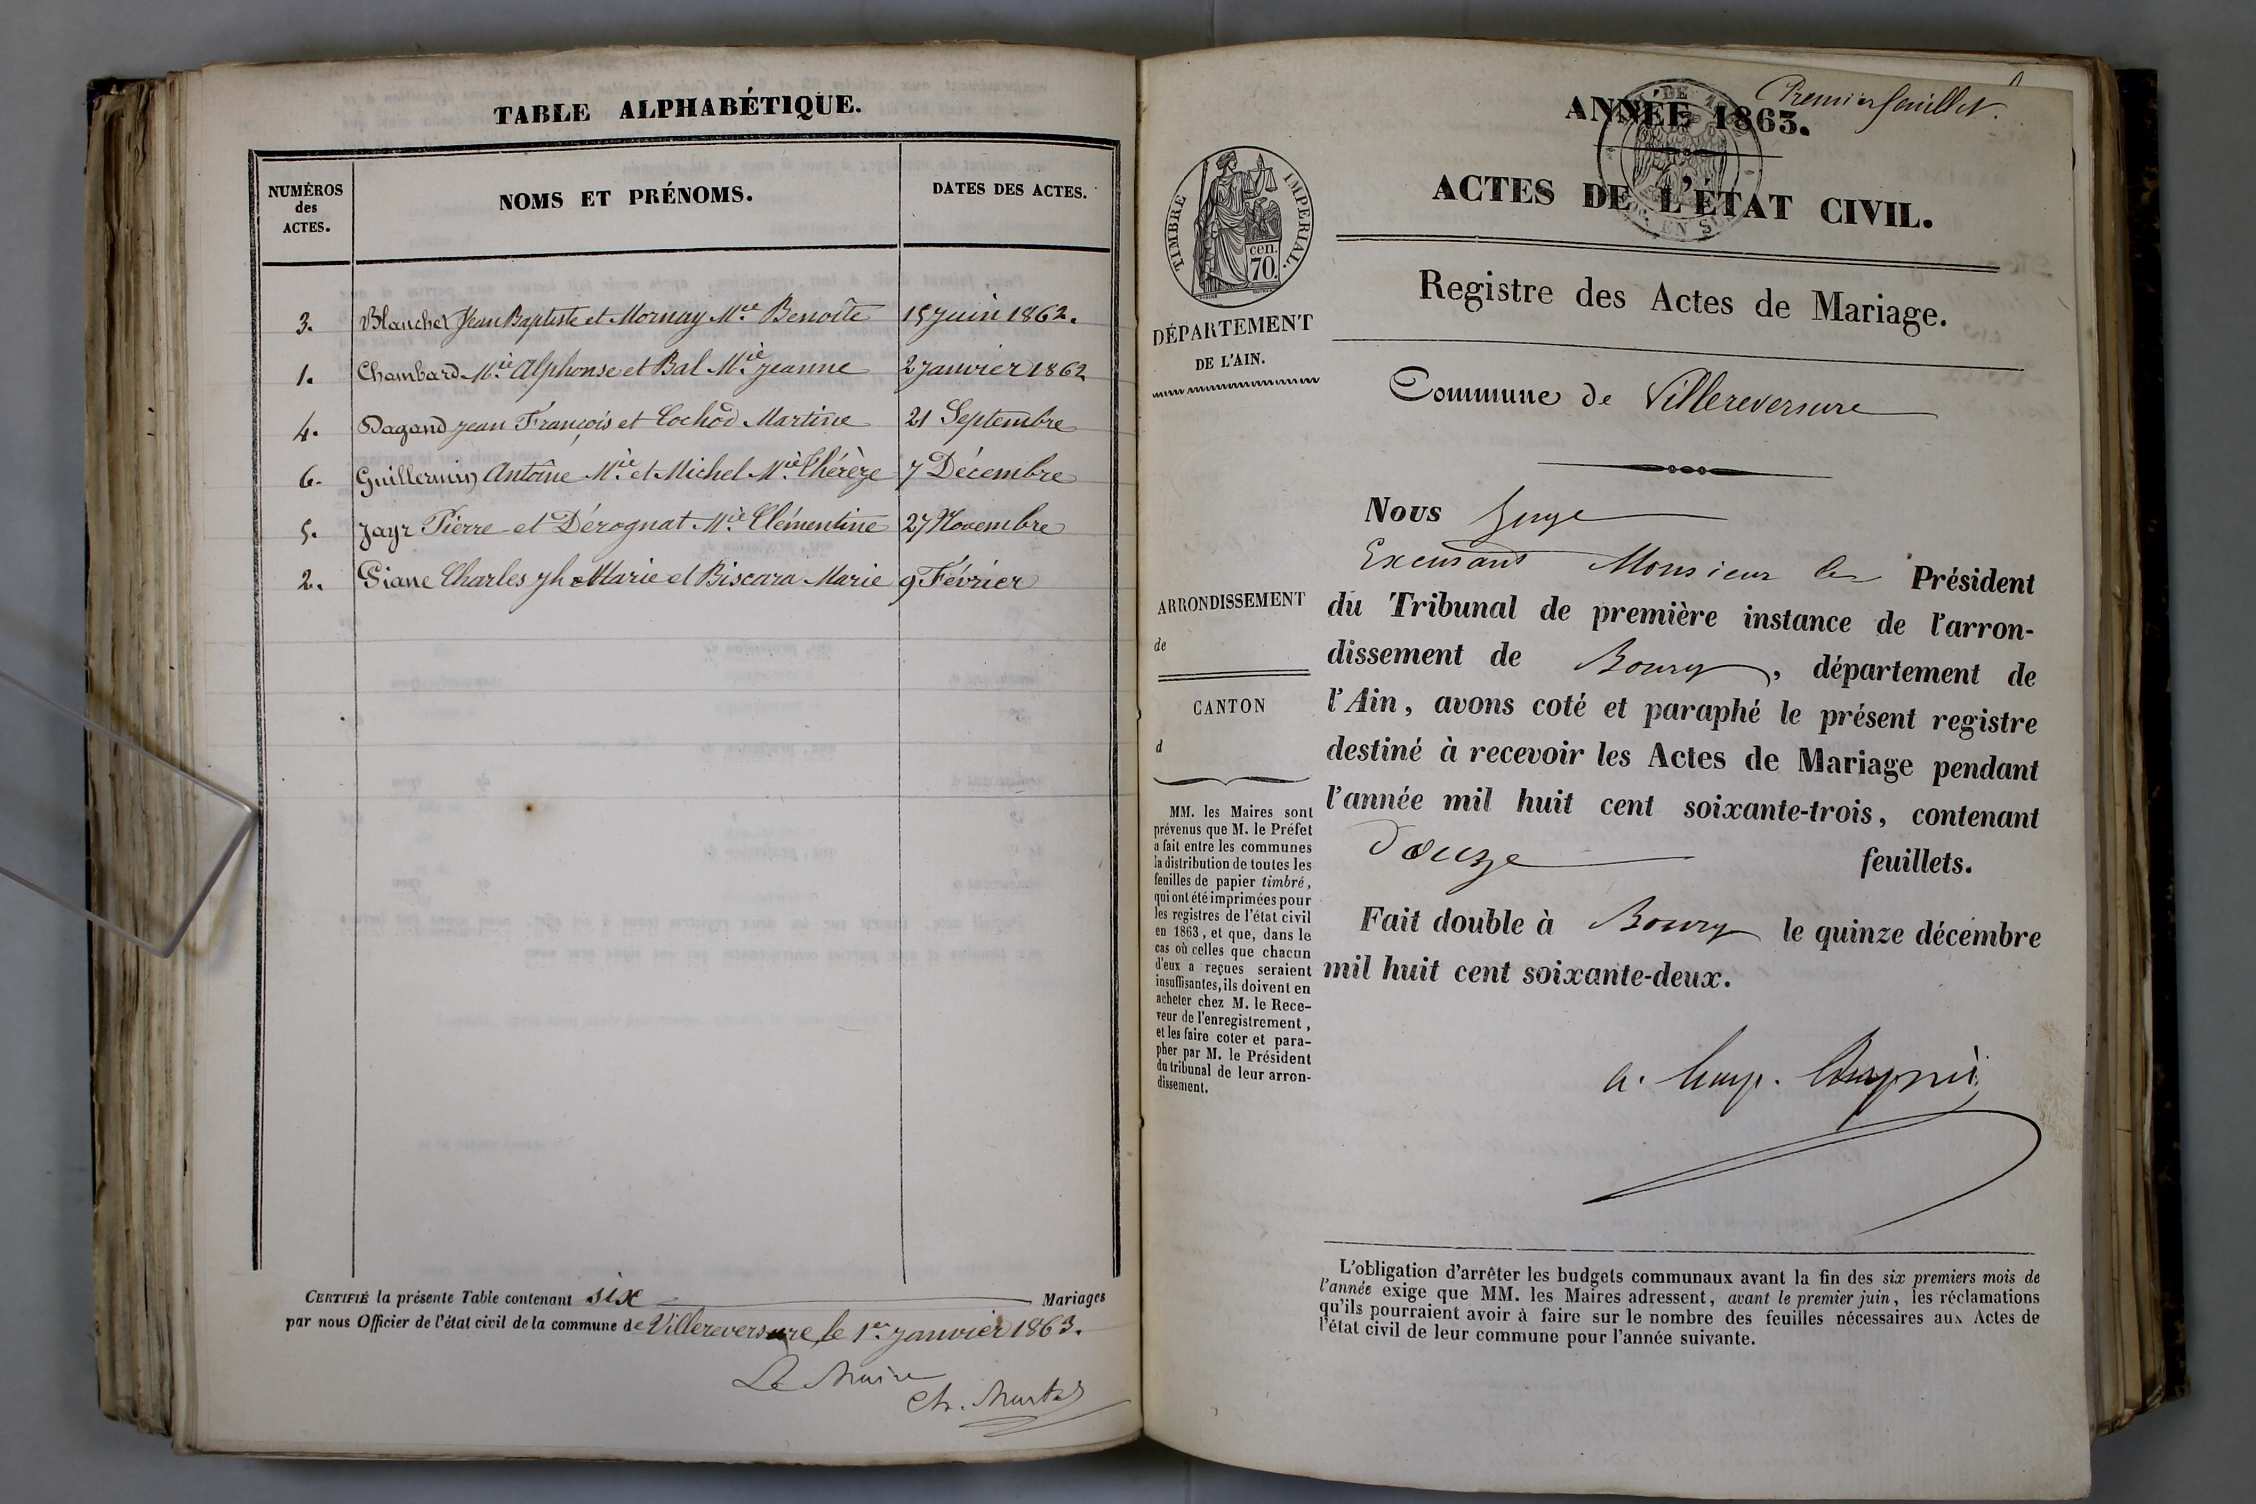 TABLE ALPHABÉTIQUE.
NUMÉROS
des
ACTES.
NOMS ET PRÉNOMS.
DATES DES ACTES.
3. Blanchet Jean Baptiste et Mornay Mie Benoîte 15 Juin 1862.
1. Chambard Mie Alphonse et Bal Mie Jeanne 2 Janvier 1862
4. Dagand Jean François et Cochod Martine 21 Septembre
6. Guillermin Antoine Mie et Michel Mie Thérèze 7 Décembre
5. Jayr Pierre et Dérognat Mie Clémentine 27 Novembre
2. Piane Charles Jh Marie et Biscara Marie 9 Février
CERTIFIÉ la présente Table contenant six Mariages
par nous Officier de l'état civil de la commune de Villereversure le 1er Janvier 1863.
Le Maire
Premier feuillet.
ANNÉE 1863.
ACTES DE L'ÉTAT CIVIL.
Registre des Actes de Mariage.
TIMBRE IMPÉRIAL.
cen.
70.
DÉPARTEMENT
DE L'AIN.
Commune de Villereversure
Nous Juge
Excusant Monsieur le Président
du Tribunal de première instance de l'arron-
dissement de Bourg, département de
l'Ain, avons coté et paraphé le présent registre
destiné à recevoir les Actes de Mariage pendant
l'année mil huit cent soixante-trois, contenant
douze feuillets.
Fait double à Bourg le quinze décembre
mil huit cent soixante-deux.
ARRONDISSEMENT
de
CANTON
d
MM. les Maires sont
prévenus que M. le Préfet
a fait entre les communes
la distribution de toutes les
feuilles de papier timbré,
qui ont été imprimées pour
les registres de l'état civil
en 1863, et que, dans le
cas où celles que chacun
d'eux a reçues seraient
insuffisantes, ils doivent en
acheter chez M. le Rece-
veur de l'enregistrement,
et les faire coter et para-
pher par M. le Président
du tribunal de leur arron-
dissement.
L'obligation d'arrêter les budgets communaux avant la fin des six premiers mois de
l'année exige que MM. les Maires adressent, avant le premier juin, les réclamations
qu'ils pourraient avoir à faire sur le nombre des feuilles nécessaires aux Actes de
l'état civil de leur commune pour l'année suivante.